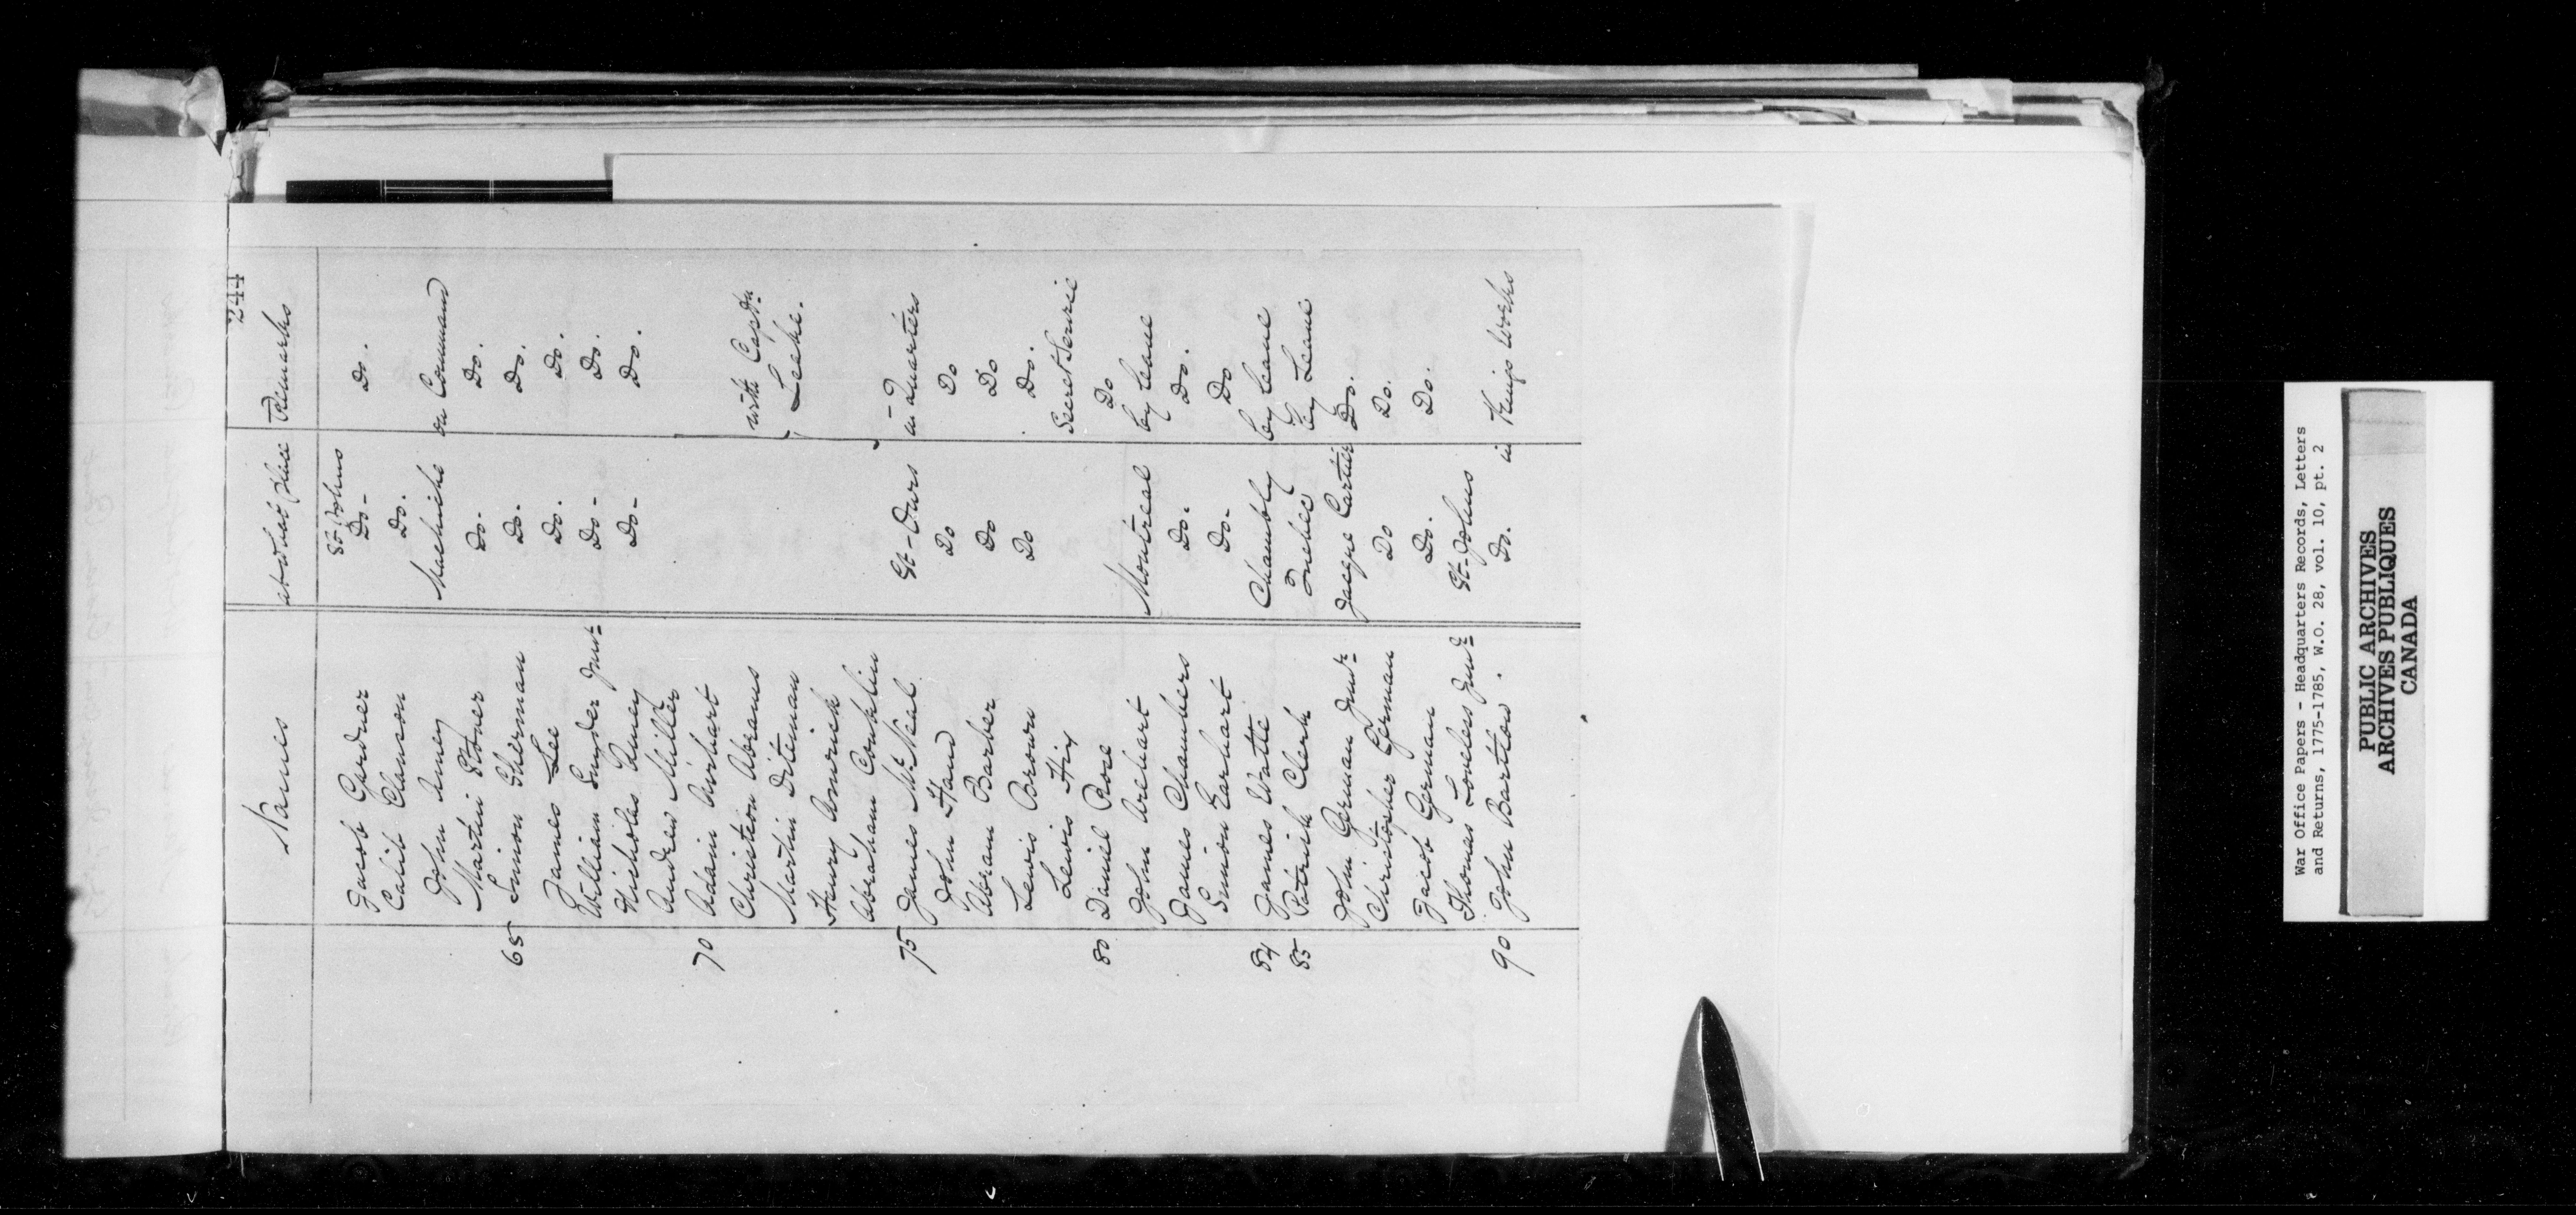 244
Names at what place Remarks
St. Johns
Jacob Gardner Do- Do.
Calib Clawson Do.
John Amey Machiche on Command
Martin Stoner Do- Do.
65 Simon Sherman Do. Do.
James Lee Do. Do.
William Snyder Junr Do- Do.
Nicholas Amey Do- Do.
Andrew Miller
70 Adam
Christion Abrams with Captn
Martin Diteman Leake.
Henry
Abraham Conklin
75 James McNeal St-Ours in Quarters
John Hand Do Do
Abram Barber Do Do
Lewis Brown Do Do.
Lewis Hix Secret Service
80 Daniel Rose Do
John Arehart Montreal by leave
James Chambers Do. Do.
Simion Earhart Do- Do
84 James Watte Chambly by leave
85 Patrick Clerk Quebec by Leave
John German Junr Jacque Cartier Do.
Christopher German Do Do.
Jacob German Do. Do.
Thomas Loveless Junr St-Johns
90 John Bartlow. Do. in Kings Works
War Office Papers - Headquarters Records, Letters
and Returns, 1775-1785, W.O. 28, vol. 10, pt. 2
PUBLIC ARCHIVES
ARCHIVES PUBLIQUES
CANADA